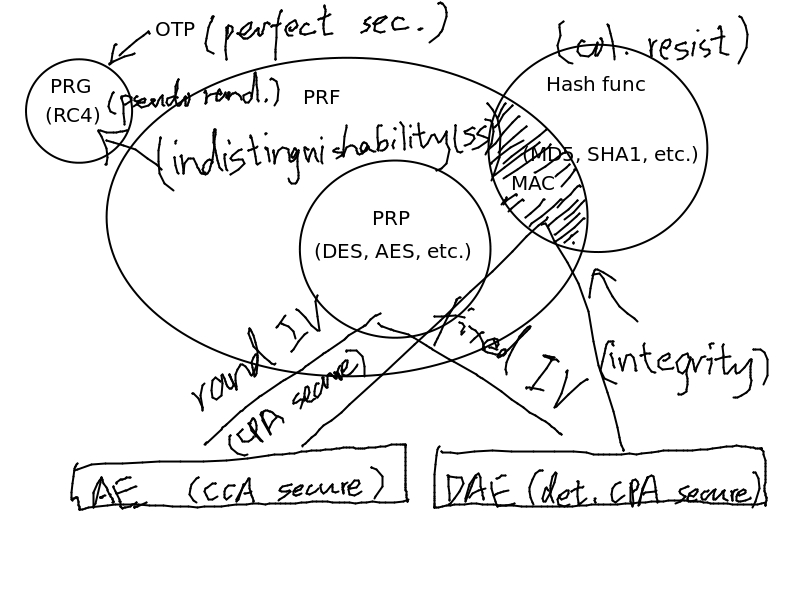 OTP (perfect sec.)
(col. resist)
PRG
(RC4)
(pseudo rand.)
PRF
Hash func
(indistinguishability(ss)
(MD5, SHA1, etc.)
MAC
PRP
(DES, AES, etc.)
rand IV
(CPA secure)
fixed IV
(integrity)
AE (CCA secure)
DAE (det. CPA secure)